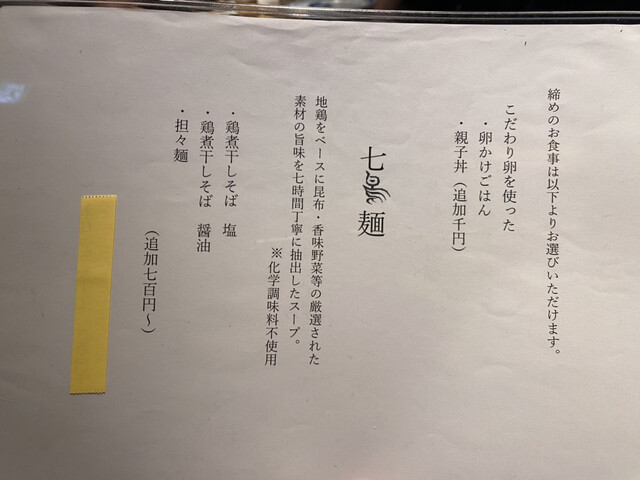 締めのお食事は以下よりお選びいただけます。
こだわり卵を使った
・卵かけごはん
・親子丼（追加千円）
七鳥麺
地鶏をベースに昆布・香味野菜等の厳選された
素材の旨味を七時間丁寧に抽出したスープ。
※化学調味料不使用
・鶏煮干しそば　塩
・鶏煮干しそば　醤油
・担々麺
（追加七百円〜）